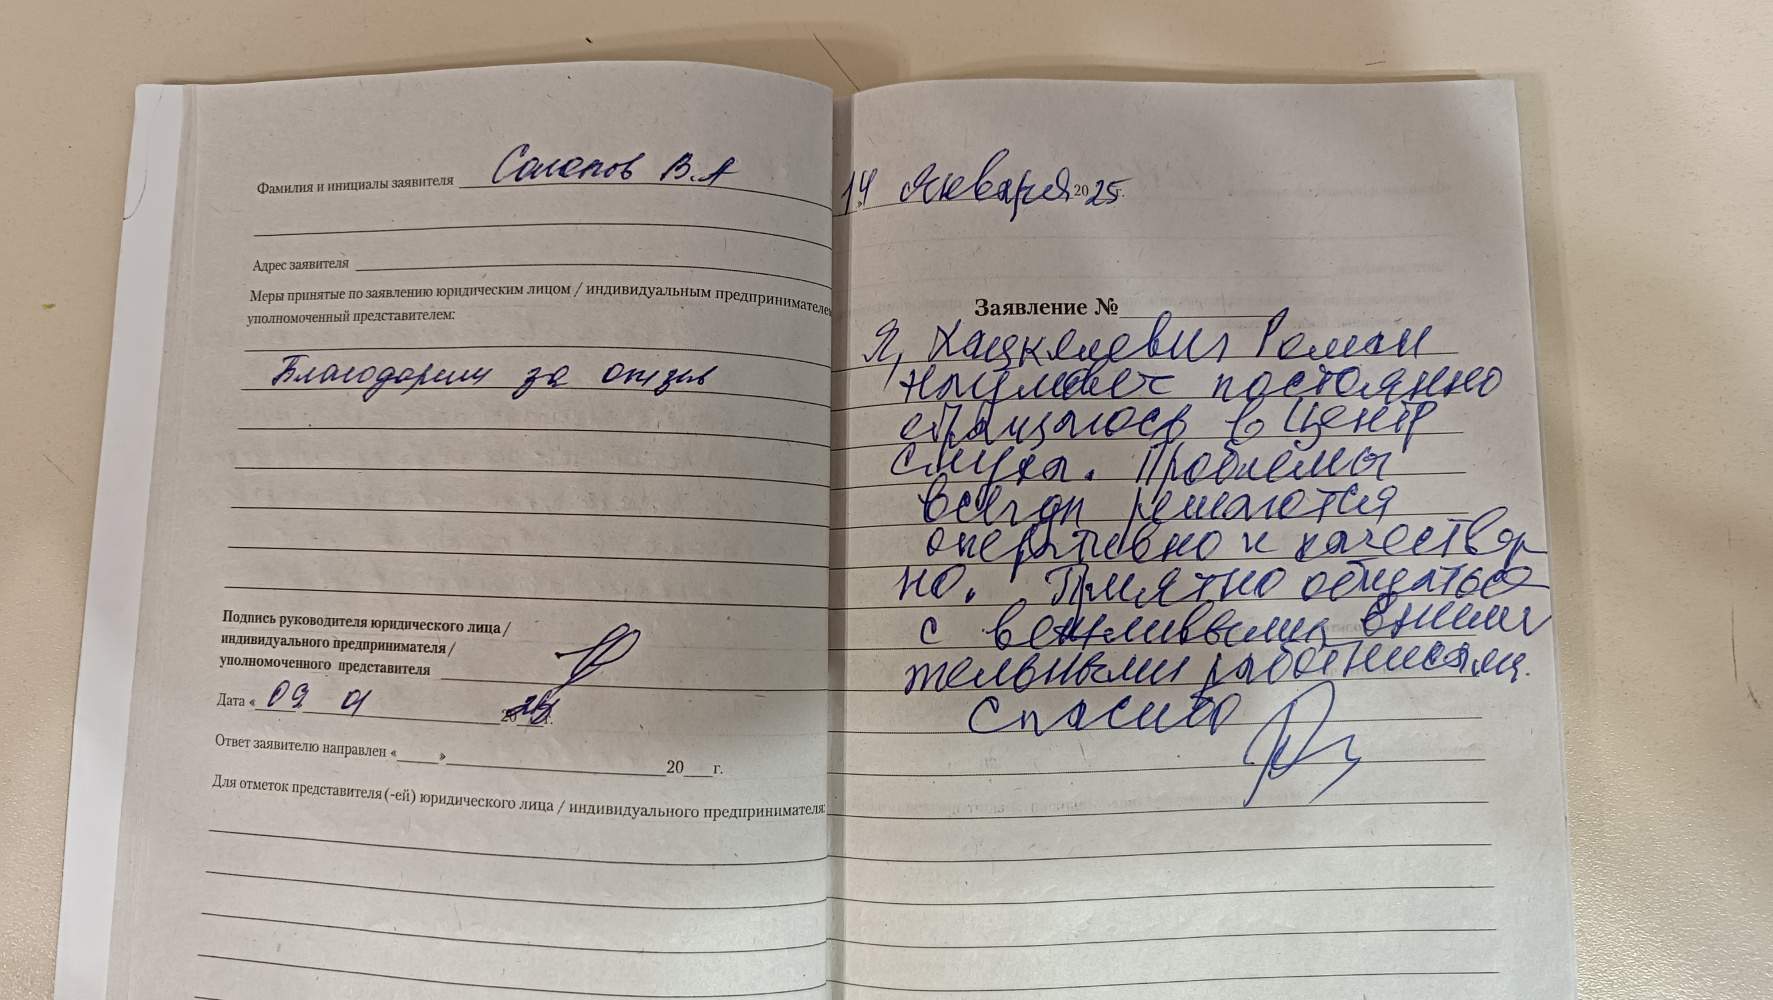 Фамилия и инициалы заявителя Солопов В.А
Адрес заявителя
Меры принятые по заявлению юридическим лицом / индивидуальным предпринимателем
уполномоченный представителем:
Благодарим за отзыв
Подпись руководителя юридического лица /
индивидуального предпринимателя /
уполномоченного представителя
Дата « 09 01 20 г.
Ответ заявителю направлен « » 20 г.
Для отметок представителя (-ей) юридического лица / индивидуального предпринимателя:
14 Января 2025г.
Заявление №
Я, Хацкелевич Роман
постоянно
обращаюсь в Центр
слуха. Проблемы
всегда решаются
оперативно и качествен
но. Приятно общаться
с вежливыми, внима
тельными работниками.
Спасибо